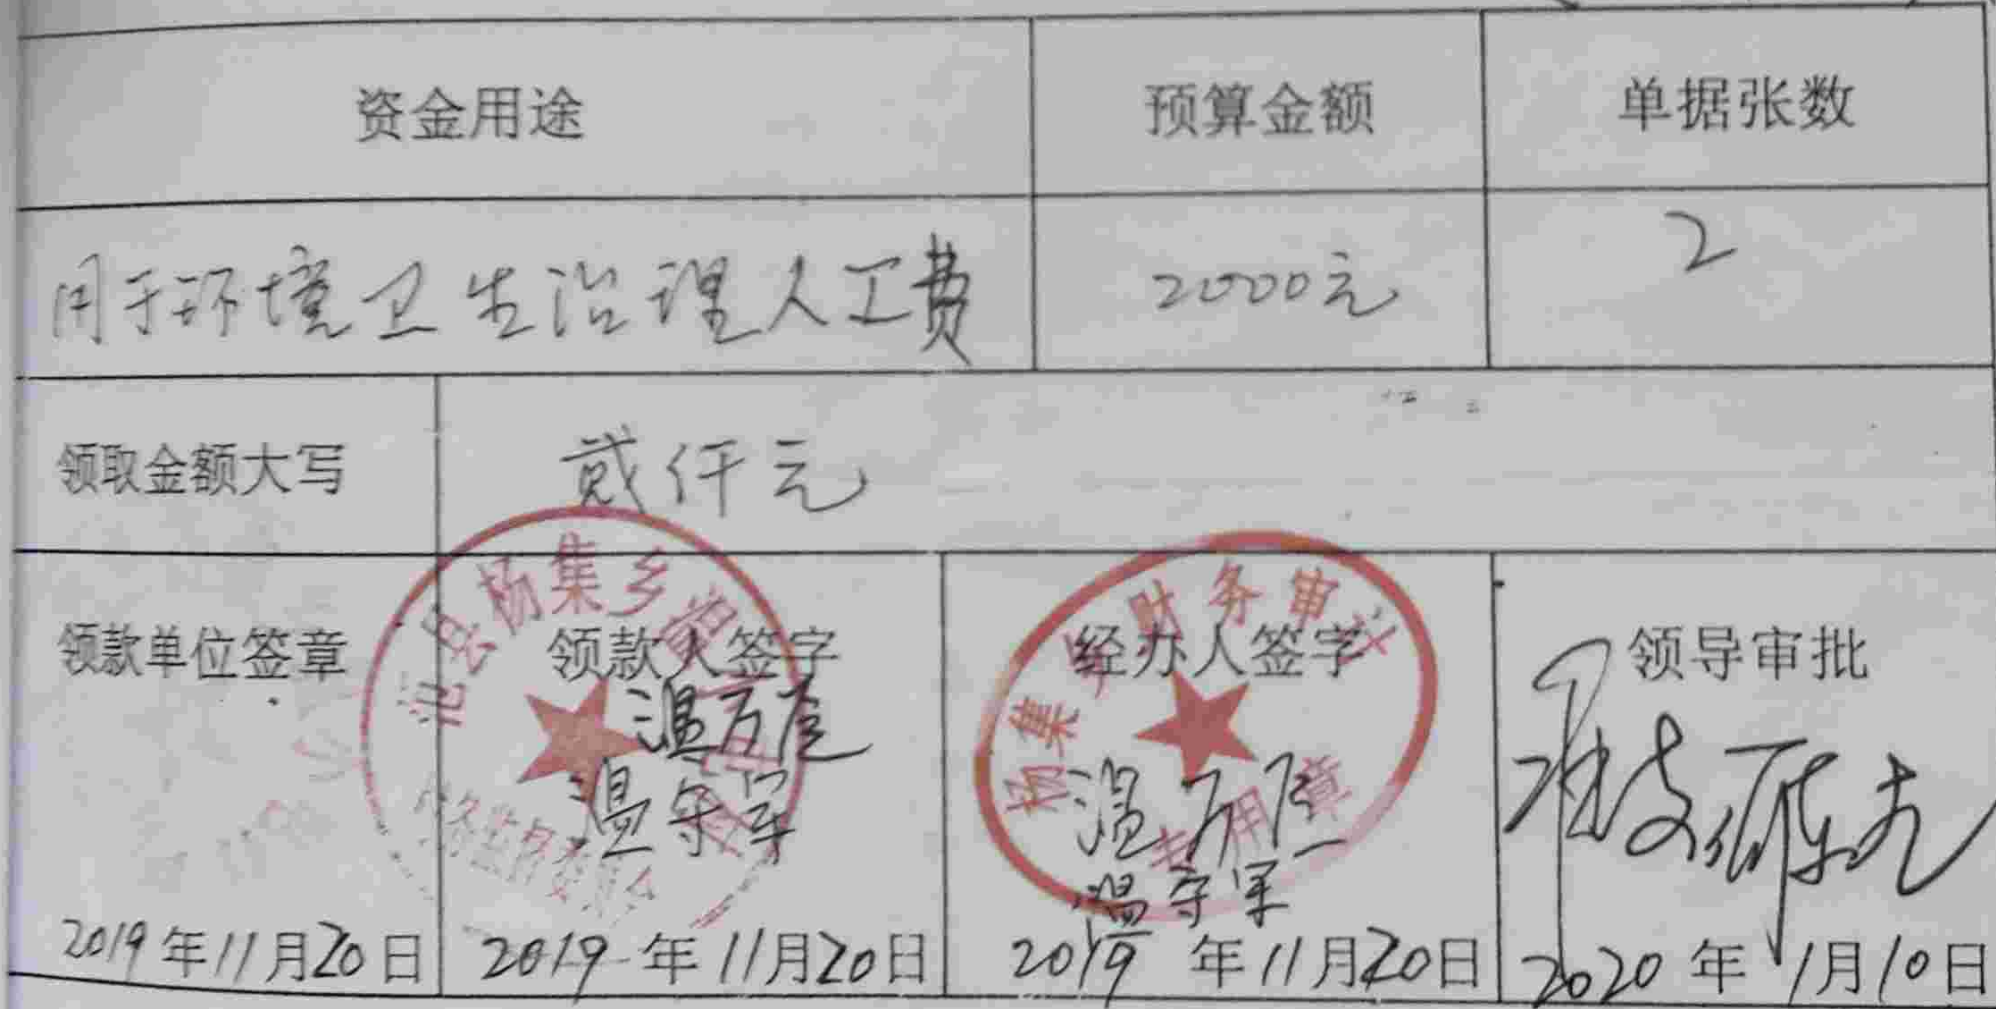 资金用途 预算金额 单据张数
用于环境卫生治理人工费 2000元 2
领取金额大写 贰仟元
领款单位签章 领款人签字 经办人签字 领导审批
范县杨集乡
村务监督委员会
杨集乡财务审计
专用章
温守军
温守军
2019年11月20日 2019年11月20日 2019年11月20日 2020年1月10日